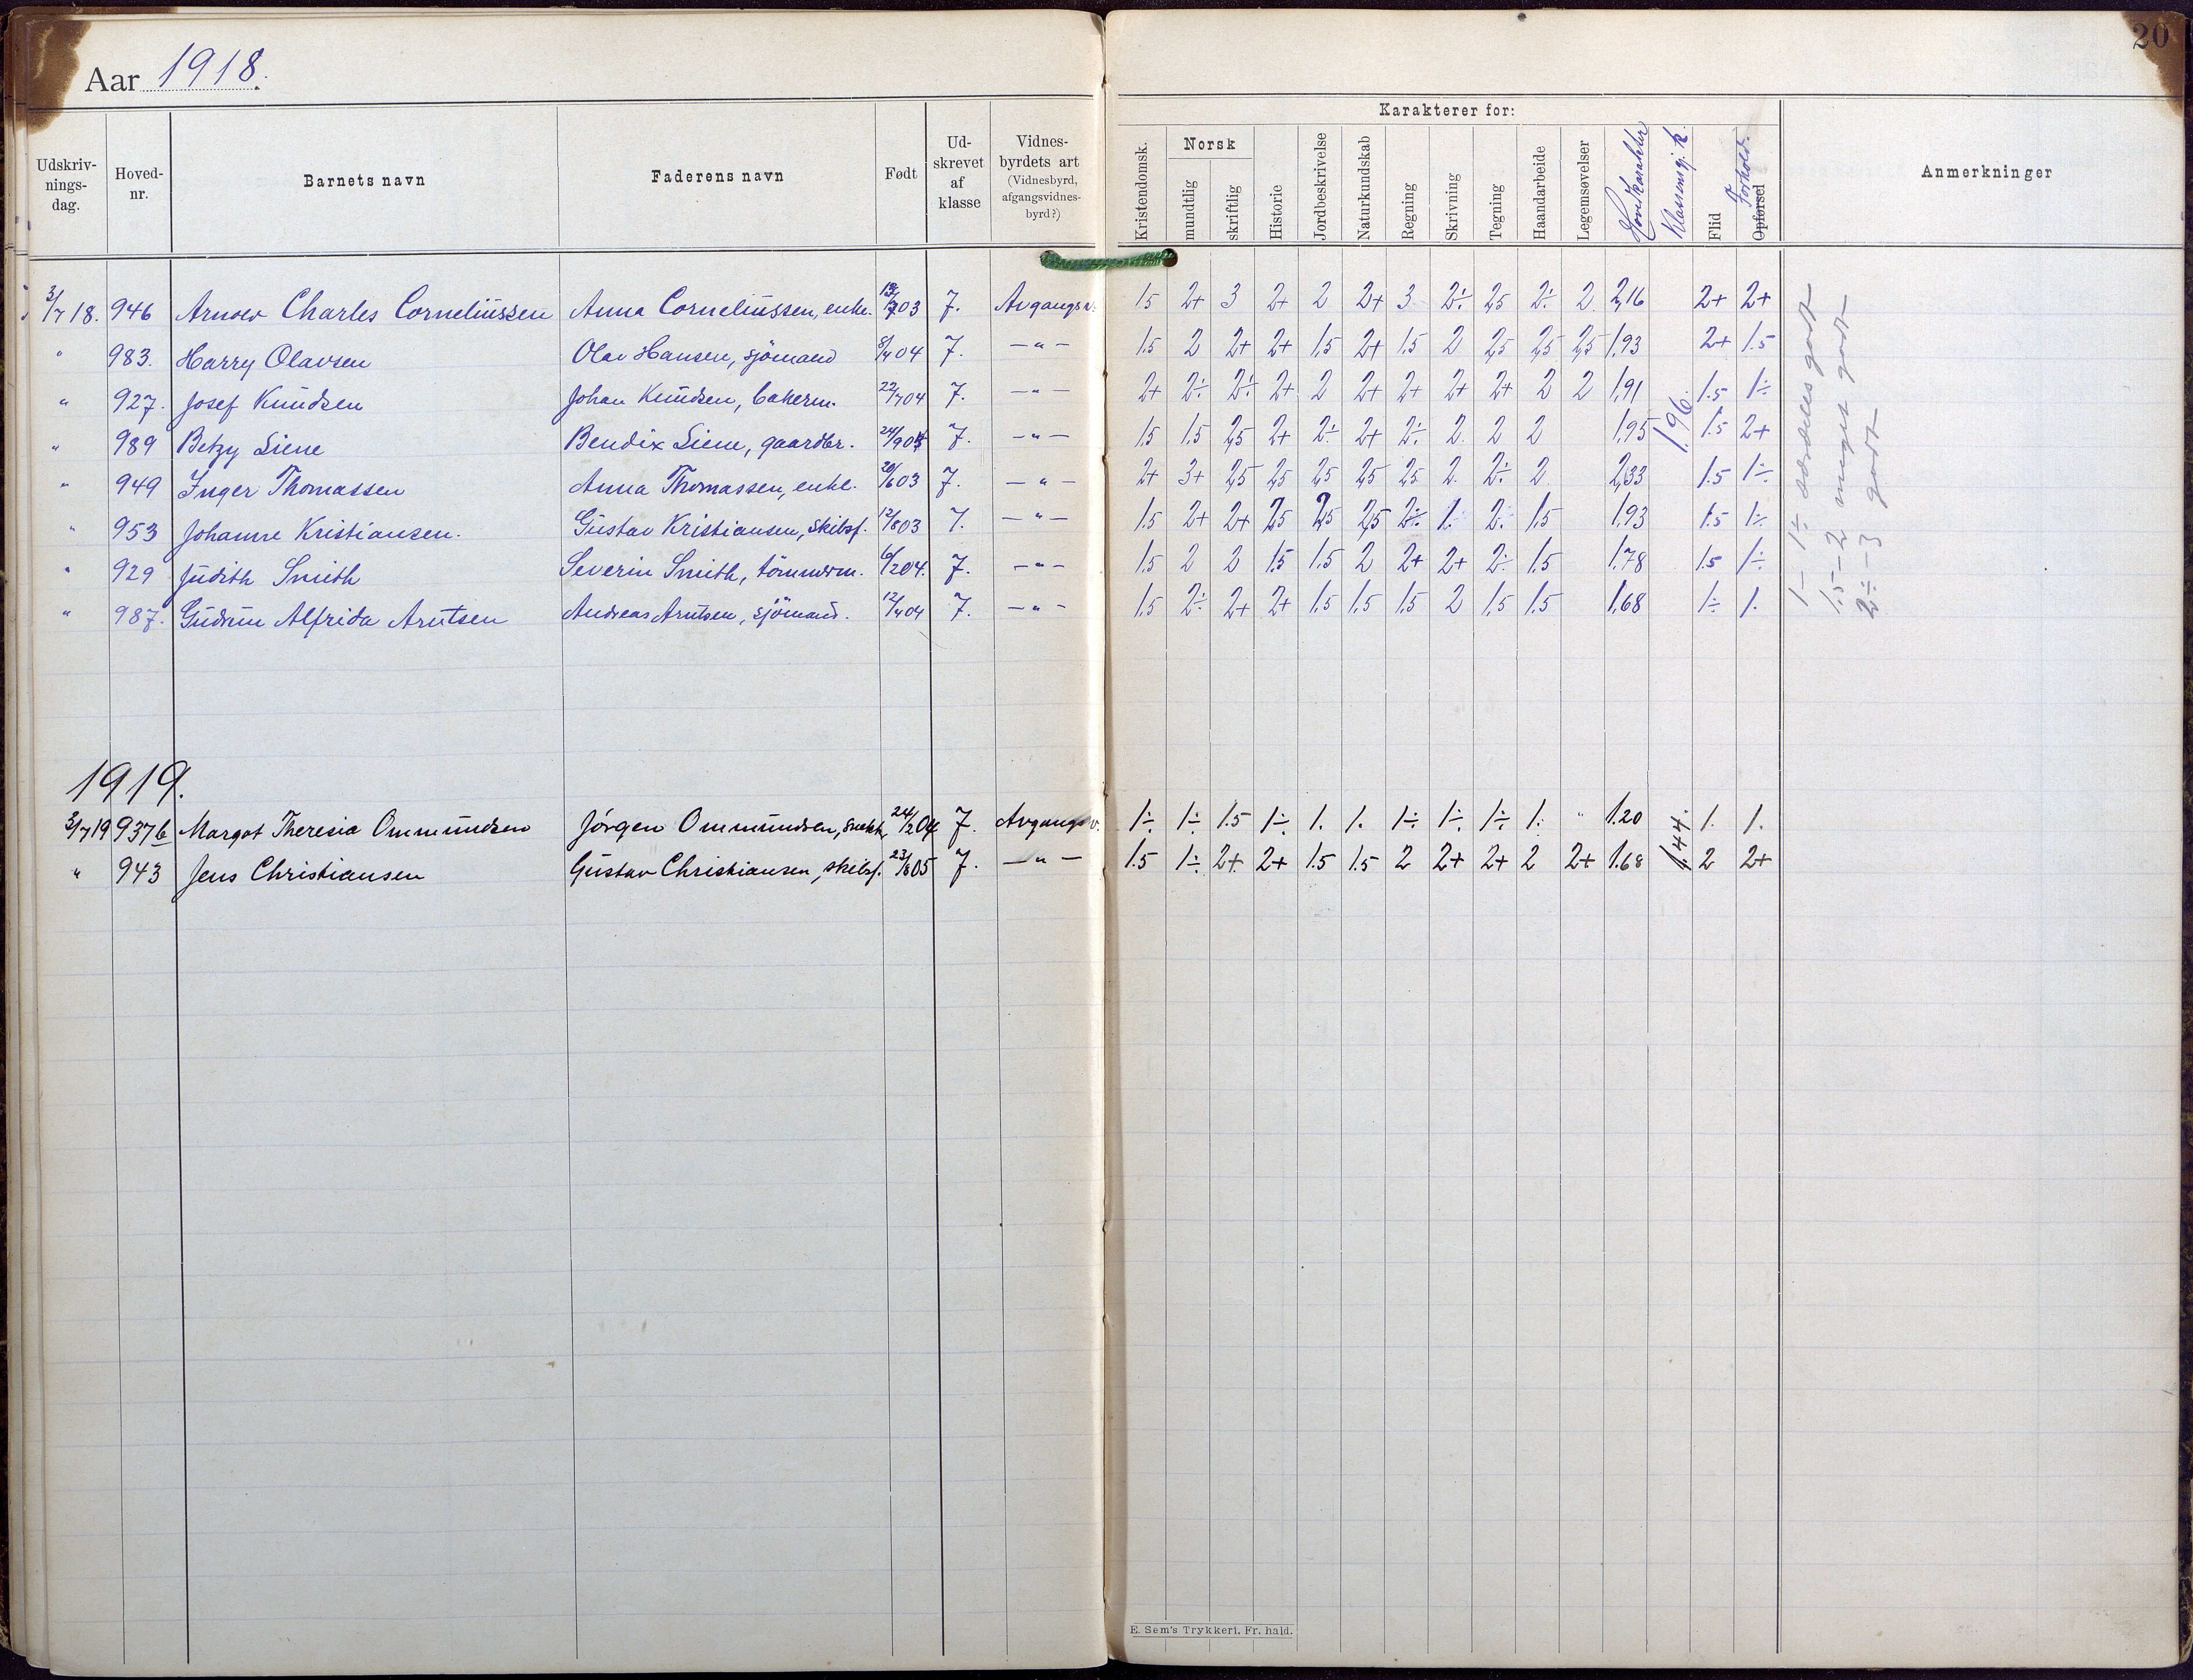 20
Aar 1918.
Karakterer for:
Udskriv-nings-dag. Hoved-nr. Barnets navn Faderens navn Født Ud-skrevet af klasse Vidnes-byrdets art (Vidnesbyrd, afgangsvidnes-byrd?) Kristendomsk. Norsk mundtlig skriftlig Historie Jordbeskrivelse Naturkundskab Regning Skrivning Tegning Haandarbeide Legemsøvelser Hovedkarakter Klassens gj. k. Flid Opførsel Forhold. Anmerkninger
3/7 18. 946 Arnolv Charles Corneliussen Anna Corneliussen, enke. 03 7. Avgangsv. 1.5 2+ 3 2+ 2 2+ 3 2÷ 2,5 2÷ 2 2,16 2+ 2+
" 983. Harry Olavsen Olav Hansen, sjömand 8/4 04 7. —"— 1.5 2 2+ 2+ 1,5 2+ 1,5 2 2,5 2,5 2,5 1,93 2+ 1.5
" 927. Josef Knudsen Johan Knudsen, bakerm. 22/7 04 7. —"— 2+ 2÷ 2÷ 2+ 2 2+ 2+ 2+ 2+ 2 2 1,91 1.5 1÷
" 989 Betzy Liene Bendix Liene, gaardbr. 24/9 7. —"— 1.5 1.5 2,5 2+ 2÷ 2+ 2÷ 2 2 2 1,95 1.96. 1.5 2+
" 949 Inger Thomassen Anna Thomassen, enke. 20/6 03 7. —"— 2+ 3+ 2,5 2,5 2,5 2,5 2,5 2 2÷ 2 2,33 1.5 1÷
" 953 Johanne Kristiansen. Gustav Kristiansen, skibsf. 12/8 03 7. —"— 1.5 2+ 2+ 2,5 2,5 2,5 2÷ 1. 2. 1.5 1,93 1.5 1÷
" 929 Judith Smith Severin Smith, tömmerm. 6/2 04. 7. —"— 1.5 2 2 1.5 1.5 2 2+ 2+ 2÷ 1.5 1.78 1.5 1÷
" 987. Gudrun Alfrida Arntsen Andreas Arntsen, sjömand. 12/4 04 7. —"— 1.5 2÷ 2+ 2+ 1.5 1.5 1.5 2 1.5 1.5 1,68 1÷ 1.
1 – 1÷ særdeles godt
1.5 – 2 meget godt
2÷ – 3 godt
1919.
3/7 19 937b Margot Theresia Ommundsen Jörgen Ommundsen, snekk. 24/2 04 7. Avgangsv. 1÷ 1÷ 1.5 1÷ 1. 1. 1÷ 1÷ 1÷ 1. " 1.20 1.44. 1. 1.
" 943 Jens Christiansen Gustav Christiansen, skibsf. 23/8 05 7. —"— 1.5 1÷ 2+ 2+ 1.5 1.5 2 2+ 2+ 2 2+ 1.68 2 2+
E. Sem's Trykkeri. Fr. hald.